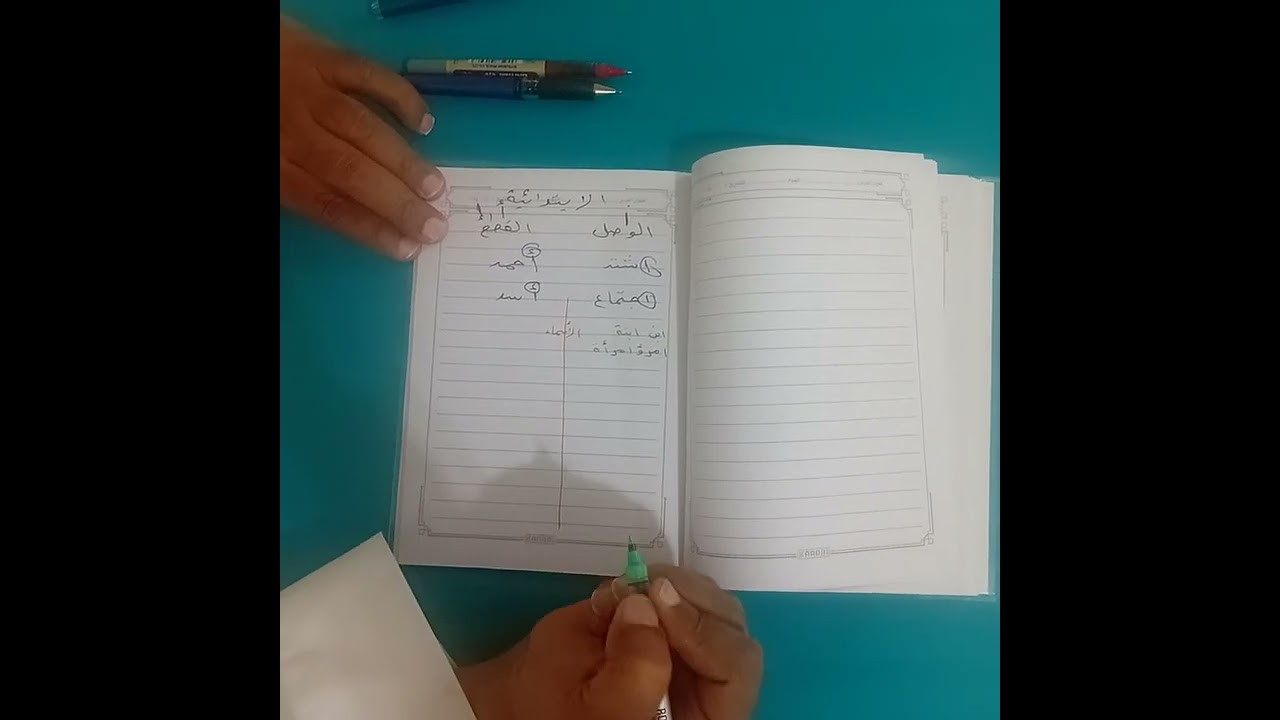 الابتدائية
ا أ إ
الواصل القطع
اشتد أحمد
اجتماع أسد
ابن ابنة الأسماء
امرؤ امرأة